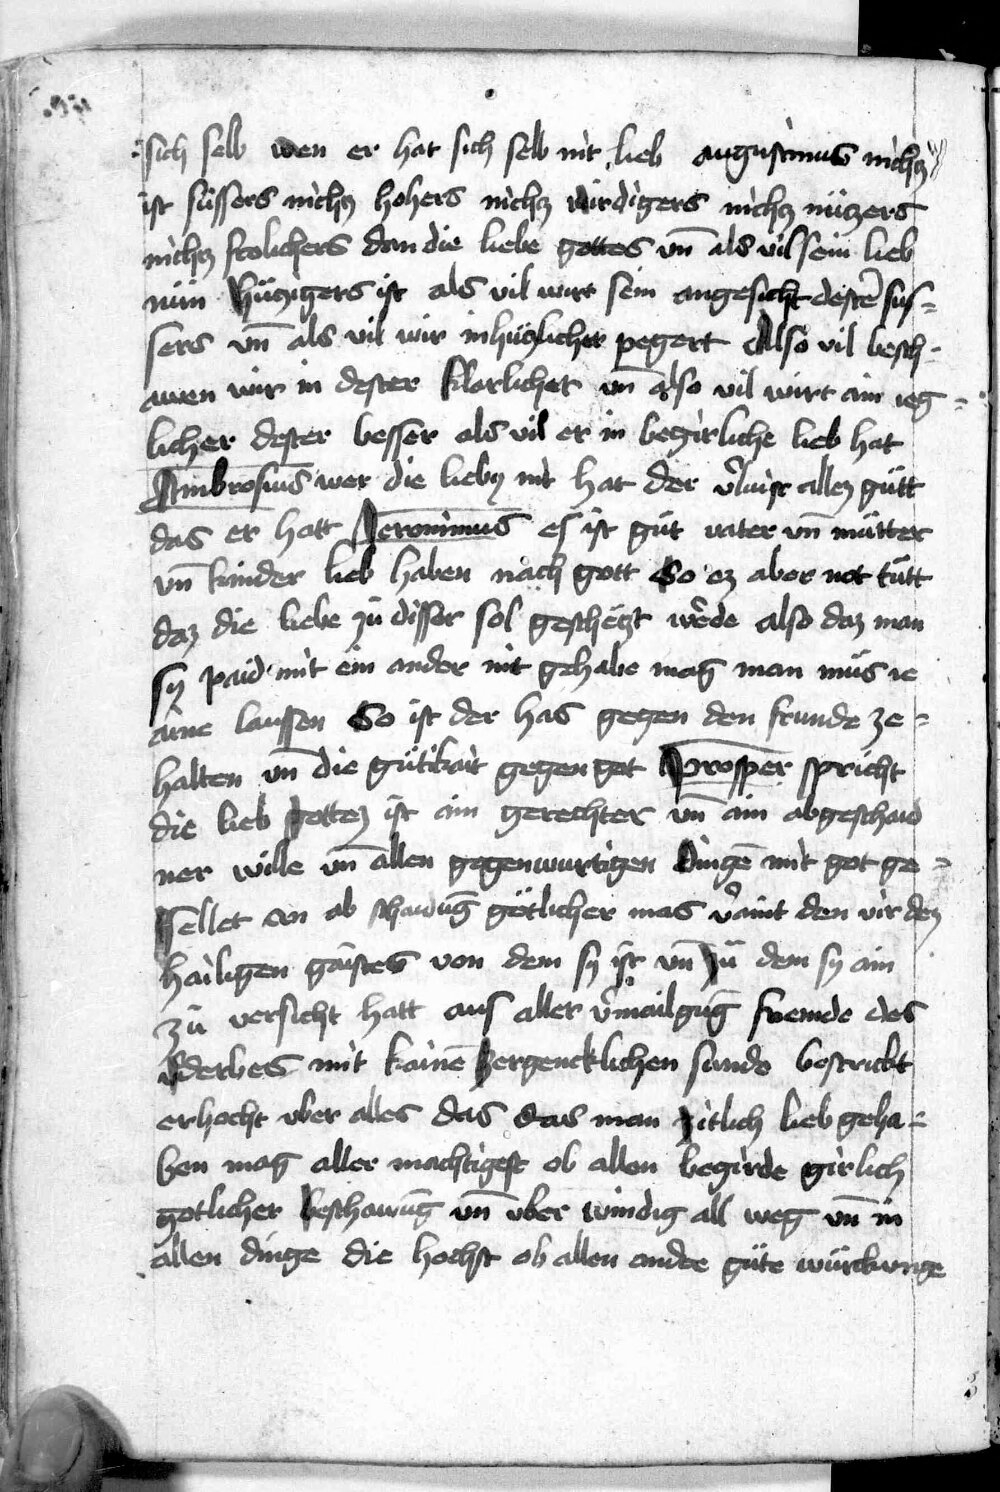 sich selb wen er hat sich selb nit lieb augustinus nichcz
ist süssers nichcz hohers nichcz wirdigers nichcz nüczers
nichcz frolichers dan die liebe gottes vn̄ als vil sein lieb
nün hüczigers ist als vil wirt sein angesicht dester̄ süs=
sers vn̄ als vil wir in hüczlicher pegert Also vil besch=
awen wir in dester klarlicher vn̄ also vil wirt ain ieg=
licher dester besser als vil er in begirliche lieb hat
Ambrosius wer die lieby nit hat der v̉luist allez gütt
das er hatt Jeronimus es ist güt vater vn̄ mütter
vn̄ kinder lieb haben nach gott So ez aber not tütt
daz die liebe zü disser sol geschetzt wêde also daz man
sy paid mit ein ander nit gehabe mag man müs ie
aine laussen So ist der has gegen den frunde ze=
halten vn̄ die gütikait gegen got Prosper spricht
die lieb gottez ist ain gerechter vn̄ ain abgeschaid
ner wille vn̄ allen gegenwurtigen dingē mit got ge=
sellet on ab schawūg götlicher mas v̉aint den vir dez
hailigen gaistes von dem sy ist vn̄ zü dem sy ain
zü versicht hatt aus aller v̉mailgūg fremde des
v̉derbes mit kainē zergencklichen sunde bestrickt
erhocht vber alles das das man zitlich lieb geha=
ben mag aller machtigest ob allen begirde girlich
gotlicher beschowūg vn̄ vber windig all weg vn̄ in
allen dinge die hochst ob allen andre güte würckunge